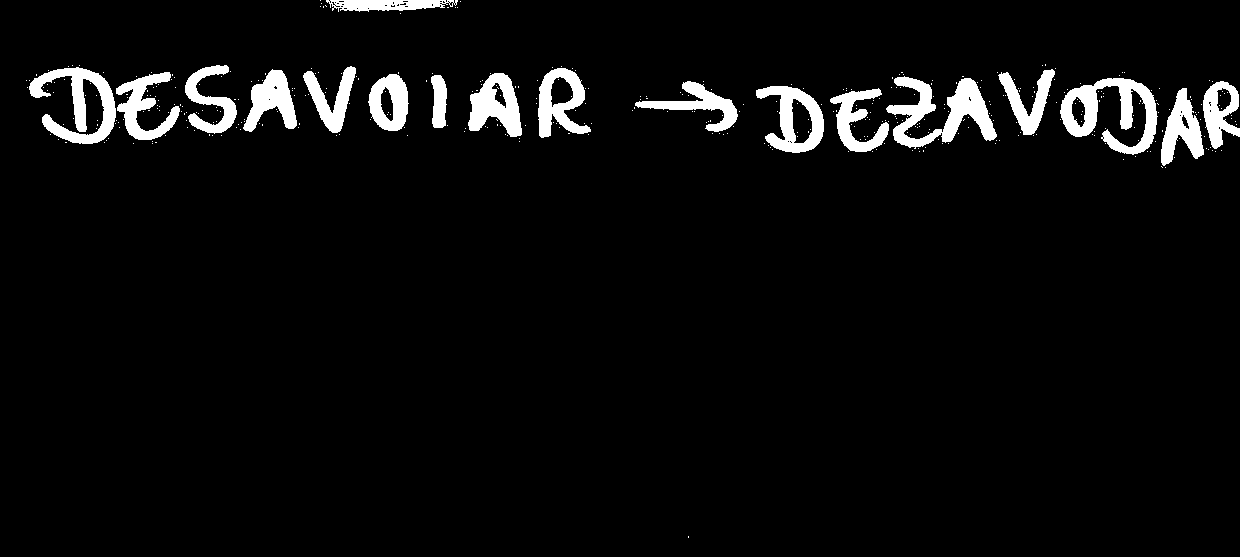 DESAVOIAR → DEZAVODAR